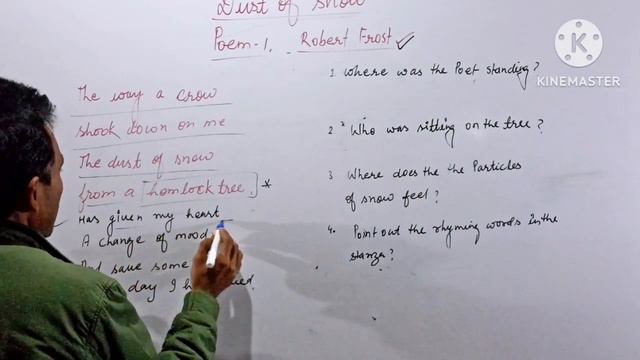 Dust of Snow
Poem-1. Robert Frost
The way a crow
shook down on me
The dust of snow
from a hemlock tree.
Has given my heart
A change of mood
And save some
day I
1. Where was the Poet standing?
2. Who was sitting on the tree?
3. Where does the the Particles
of snow feel?
4. Point out the rhyming words in the
stanza?
K
KINEMASTER